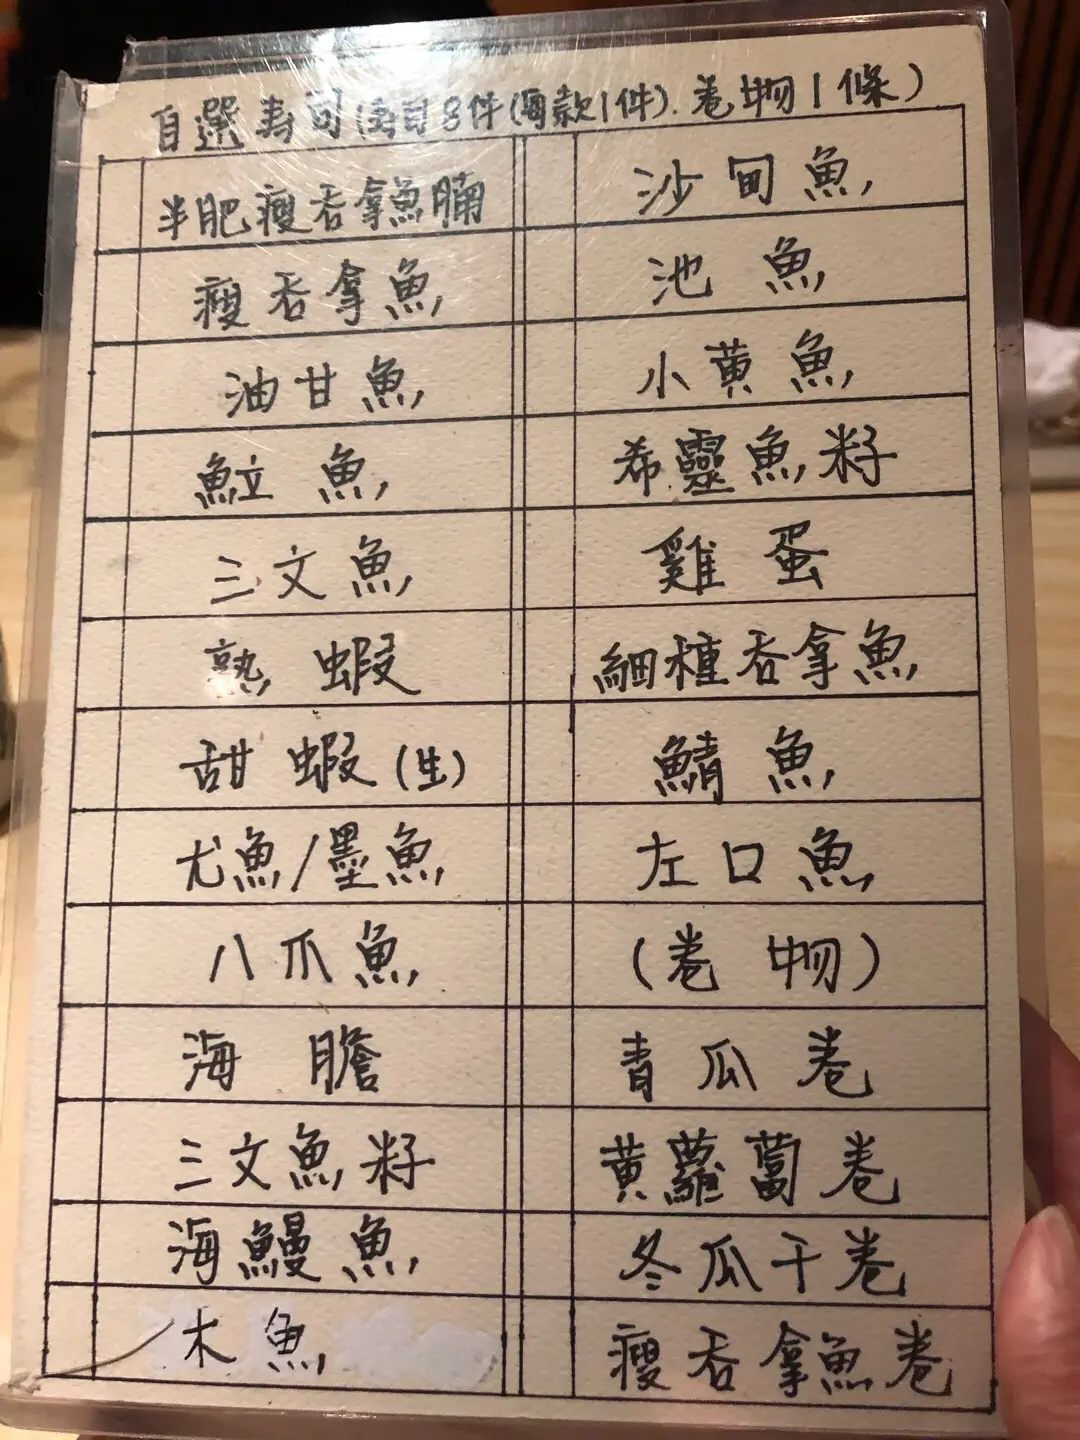 自選壽司(壽司8件(每款1件).卷物1條)
半肥瘦吞拿魚腩
瘦吞拿魚
油甘魚
鮍魚
三文魚
熟蝦
甜蝦(生)
尤魚/墨魚
八爪魚
海膽
三文魚籽
海鰻魚
木魚
沙甸魚
池魚
小黄魚
希靈魚籽
雞蛋
細種吞拿魚
鯖魚
左口魚
(卷物)
青瓜卷
黄蘿蔔卷
冬瓜干卷
瘦吞拿魚卷